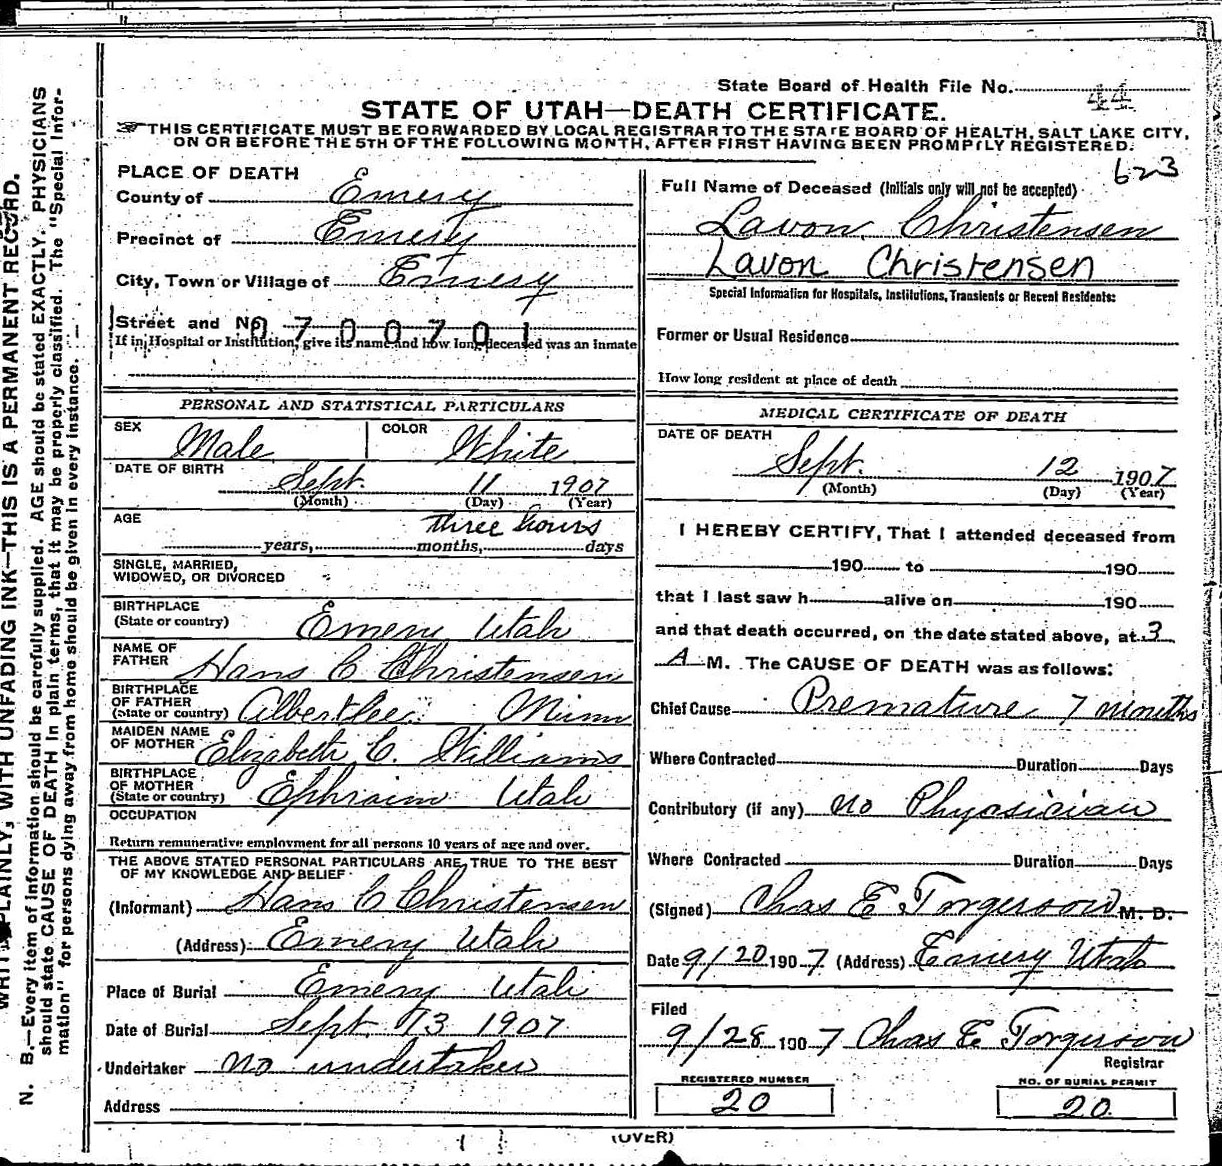 State Board of Health File No. 44
STATE OF UTAH—DEATH CERTIFICATE.
THIS CERTIFICATE MUST BE FORWARDED BY LOCAL REGISTRAR TO THE STATE BOARD OF HEALTH, SALT LAKE CITY,
ON OR BEFORE THE 5TH OF THE FOLLOWING MONTH, AFTER FIRST HAVING BEEN PROMPTLY REGISTERED.
623
PLACE OF DEATH
County of Emery
Precinct of Emery
City, Town or Village of Emery
Street and No. 0 7 0 0 7 0 1
If in Hospital or Institution, give its name and how long deceased was an inmate
Full Name of Deceased (Initials only will not be accepted)
Lavon Christensen
Lavon Christensen
Special Information for Hospitals, Institutions, Transients or Recent Residents:
Former or Usual Residence
How long resident at place of death
PERSONAL AND STATISTICAL PARTICULARS
SEX Male COLOR White
DATE OF BIRTH
Sept. 11 1907
(Month) (Day) (Year)
AGE three hours
years, months, days
SINGLE, MARRIED,
WIDOWED, OR DIVORCED
BIRTHPLACE
(State or country) Emery Utah
NAME OF
FATHER Hans C Christensen
BIRTHPLACE
OF FATHER
(State or country) Albertlee Minn
MAIDEN NAME
OF MOTHER Elizabeth C. Williams
BIRTHPLACE
OF MOTHER
(State or country) Ephraim Utah
OCCUPATION
Return remunerative employment for all persons 10 years of age and over.
THE ABOVE STATED PERSONAL PARTICULARS ARE TRUE TO THE BEST
OF MY KNOWLEDGE AND BELIEF
(Informant) Hans C Christensen
(Address) Emery Utah
Place of Burial Emery Utah
Date of Burial Sept 13 1907
Undertaker no undertaker
Address
MEDICAL CERTIFICATE OF DEATH
DATE OF DEATH
Sept. 12 1907
(Month) (Day) (Year)
I HEREBY CERTIFY, That I attended deceased from
190 to 190
that I last saw h alive on 190
and that death occurred, on the date stated above, at 3
A M. The CAUSE OF DEATH was as follows:
Chief Cause Premature 7 months
Where Contracted Duration Days
Contributory (if any) no Phycsician
Where Contracted Duration Days
(Signed) Chas E Torgerson M. D.
Date 9/20 1907 (Address) Emery Utah
Filed
9/28 1907 Chas E Torgerson
Registrar
REGISTERED NUMBER
20
NO. OF BURIAL PERMIT
20
(OVER)
WRITE PLAINLY, WITH UNFADING INK—THIS IS A PERMANENT RECORD.
N. B.—Every item of information should be carefully supplied. AGE should be stated EXACTLY. PHYSICIANS
should state CAUSE OF DEATH in plain terms, that it may be properly classified. The "Special Infor-
mation" for persons dying away from home should be given in every instance.